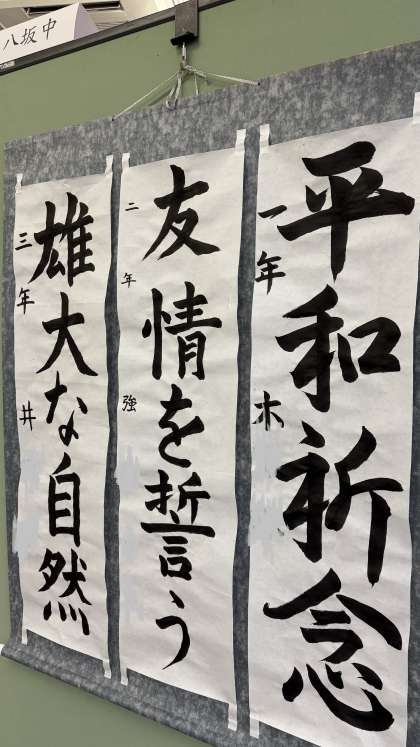 八坂中
平和祈念
一年 木
友情を誓う
二年 強
雄大な自然
三年 井